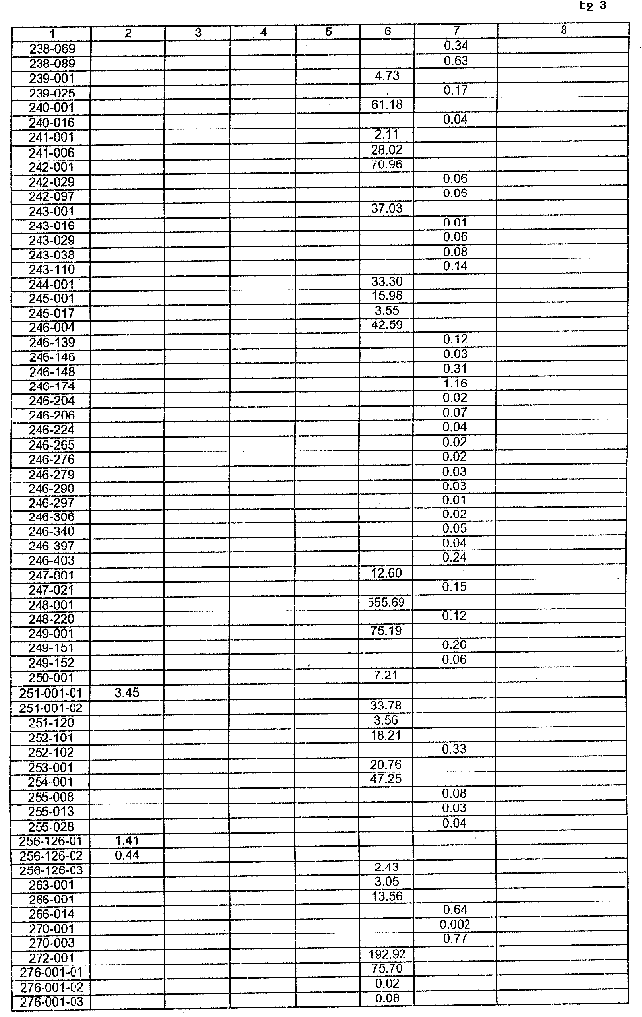 էջ 3
1 2 3 4 5 6 7 8
238-069 0.34
238-089 0.63
239-001 4.73
239-025 0.17
240-001 61.18
240-016 0.04
241-001 2.11
241-006 28.02
242-001 70.96
242-029 0.06
242-097 0.06
243-001 37.03
243-016 0.01
243-029 0.06
243-038 0.08
243-110 0.14
244-001 33.30
245-001 15.98
245-017 3.55
246-004 42.59
246-139 0.12
246-146 0.03
246-148 0.31
246-174 1.16
246-204 0.02
246-206 0.07
246-224 0.04
246-265 0.02
246-276 0.02
246-279 0.03
246-290 0.03
246-297 0.01
246-306 0.02
246-340 0.05
246-397 0.04
246-403 0.24
247-001 12.60
247-021 0.15
248-001 555.69
248-220 0.12
249-001 75.19
249-151 0.20
249-152 0.06
250-001 7.21
251-001-01 3.45
251-001-02 33.78
251-120 3.56
252-101 18.21
252-102 0.33
253-001 20.76
254-001 47.25
255-008 0.08
255-013 0.03
255-028 0.04
256-126-01 1.41
256-126-02 0.44
256-126-03 2.43
263-001 3.05
266-001 13.56
266-014 0.64
270-001 0.002
270-003 0.77
272-001 192.92
276-001-01 75.70
276-001-02 0.02
276-001-03 0.08